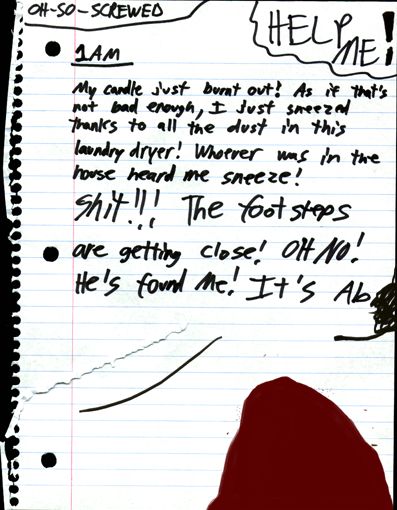 OH-SO-SCREWED
HELP
ME!
1AM
My candle just burnt out! As if that's
not bad enough, I just sneezed
thanks to all the dust in this
laundry dryer! Whoever was in the
house heard me sneeze!
Shit!!! The footsteps
are getting close! OH NO!
He's found Me! It's Ab